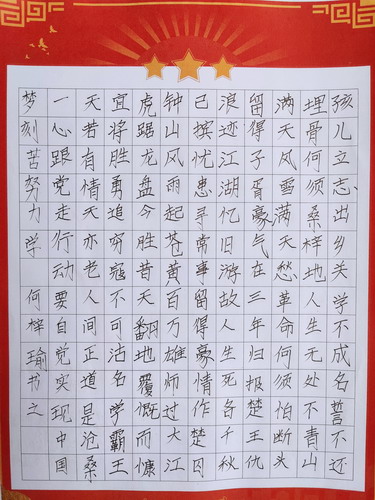 孩儿立志出乡关学不成名誓不还
埋骨何须桑梓地人生无处不青山
满天风雪满天愁革命何须怕断头
留得子胥豪气在三年归报楚王仇
浪迹江湖忆旧游故人生死各千秋
已摈忧患寻常事留得豪情作楚囚
钟山风雨起苍黄百万雄师过大江
虎踞龙盘今胜昔天翻地覆慨而慷
宜将胜勇追穷寇不可沽名学霸王
天若有情天亦老人间正道是沧桑
一心跟党走行动要自觉实现中国
梦刻苦努力学 何梓瑜书之